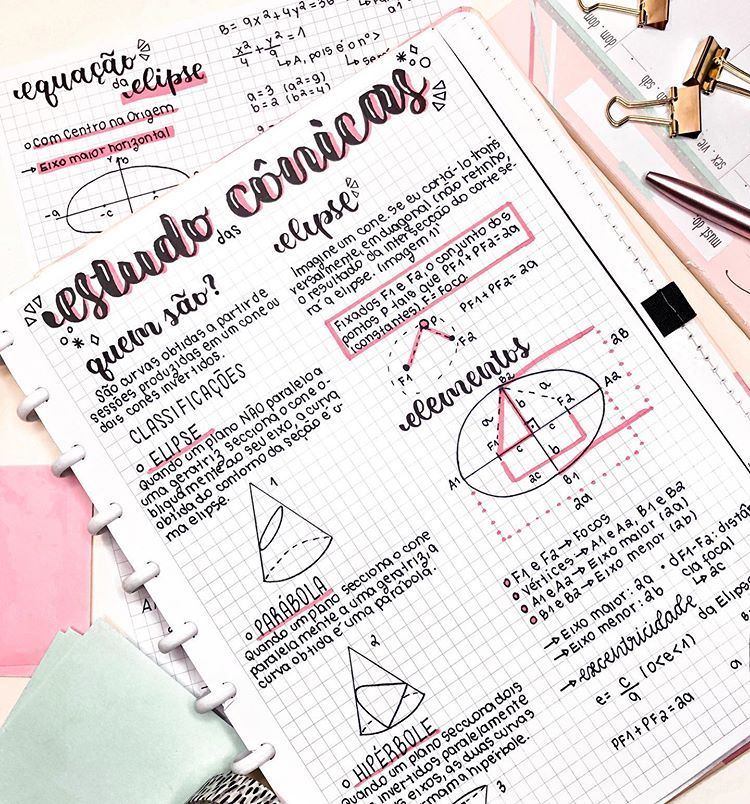 B = 9x² + 4y² = 36
x²/4 + y²/9 = 1
↳ A, pois é o nº >
a = 3 (a² = 9)
b = 2 (b² = 4)
equação
da elipse
com centro na Origem
→ Eixo maior horizontal
b
-a -c
estudo das cônicas
quem são?
São curvas obtidas a partir de
sessões produzidas em um cone ou
dois cones invertidos.
CLASSIFICAÇÕES
ELIPSE
Quando um plano NÃO paralelo a
uma geratriz secciona o cone o-
bliquamente ao seu eixo, a curva
obtida do contorno da secção é u-
ma elipse.
1
PARÁBOLA
Quando um plano secciona o cone
paralelamente a uma geratriz, a
curva obtida é uma parábola.
2
HIPÉRBOLE
Quando um plano secciona dois
invertidos paralelamente
eixos, as duas curvas
formam a hipérbole.
3
elipse
Imagine um cone. Se eu cortá-lo trans
versalmente, em diagonal (não retinho,
o resultado da intersecção do corte se-
rá a elipse. (imagem 1)
Fixados F1 e F2, o conjunto dos
pontos P tais que PF1 + PF2 = 2a
(constantes). F = Foco.
PF1 + PF2 = 2a
P
F1
F2
elementos
B2
2B
a b a
A2
F1 F2
c c
b
A1
2c
B1
2a
F1 e F2 → Focos
Vértices → A1 e A2, B1 e B2
A1 e A2 → Eixo maior (2a)
B1 e B2 → Eixo menor (2b)
dF1-F2: distân
cia focal
↳ 2c
→ Eixo maior: 2a
→ Eixo menor: 2b
→ excentricidade da Elipse
e = c/a (0<e<1)
PF1 + PF2 = 2a
dom.
sáb.
sex.
vie.
must do: